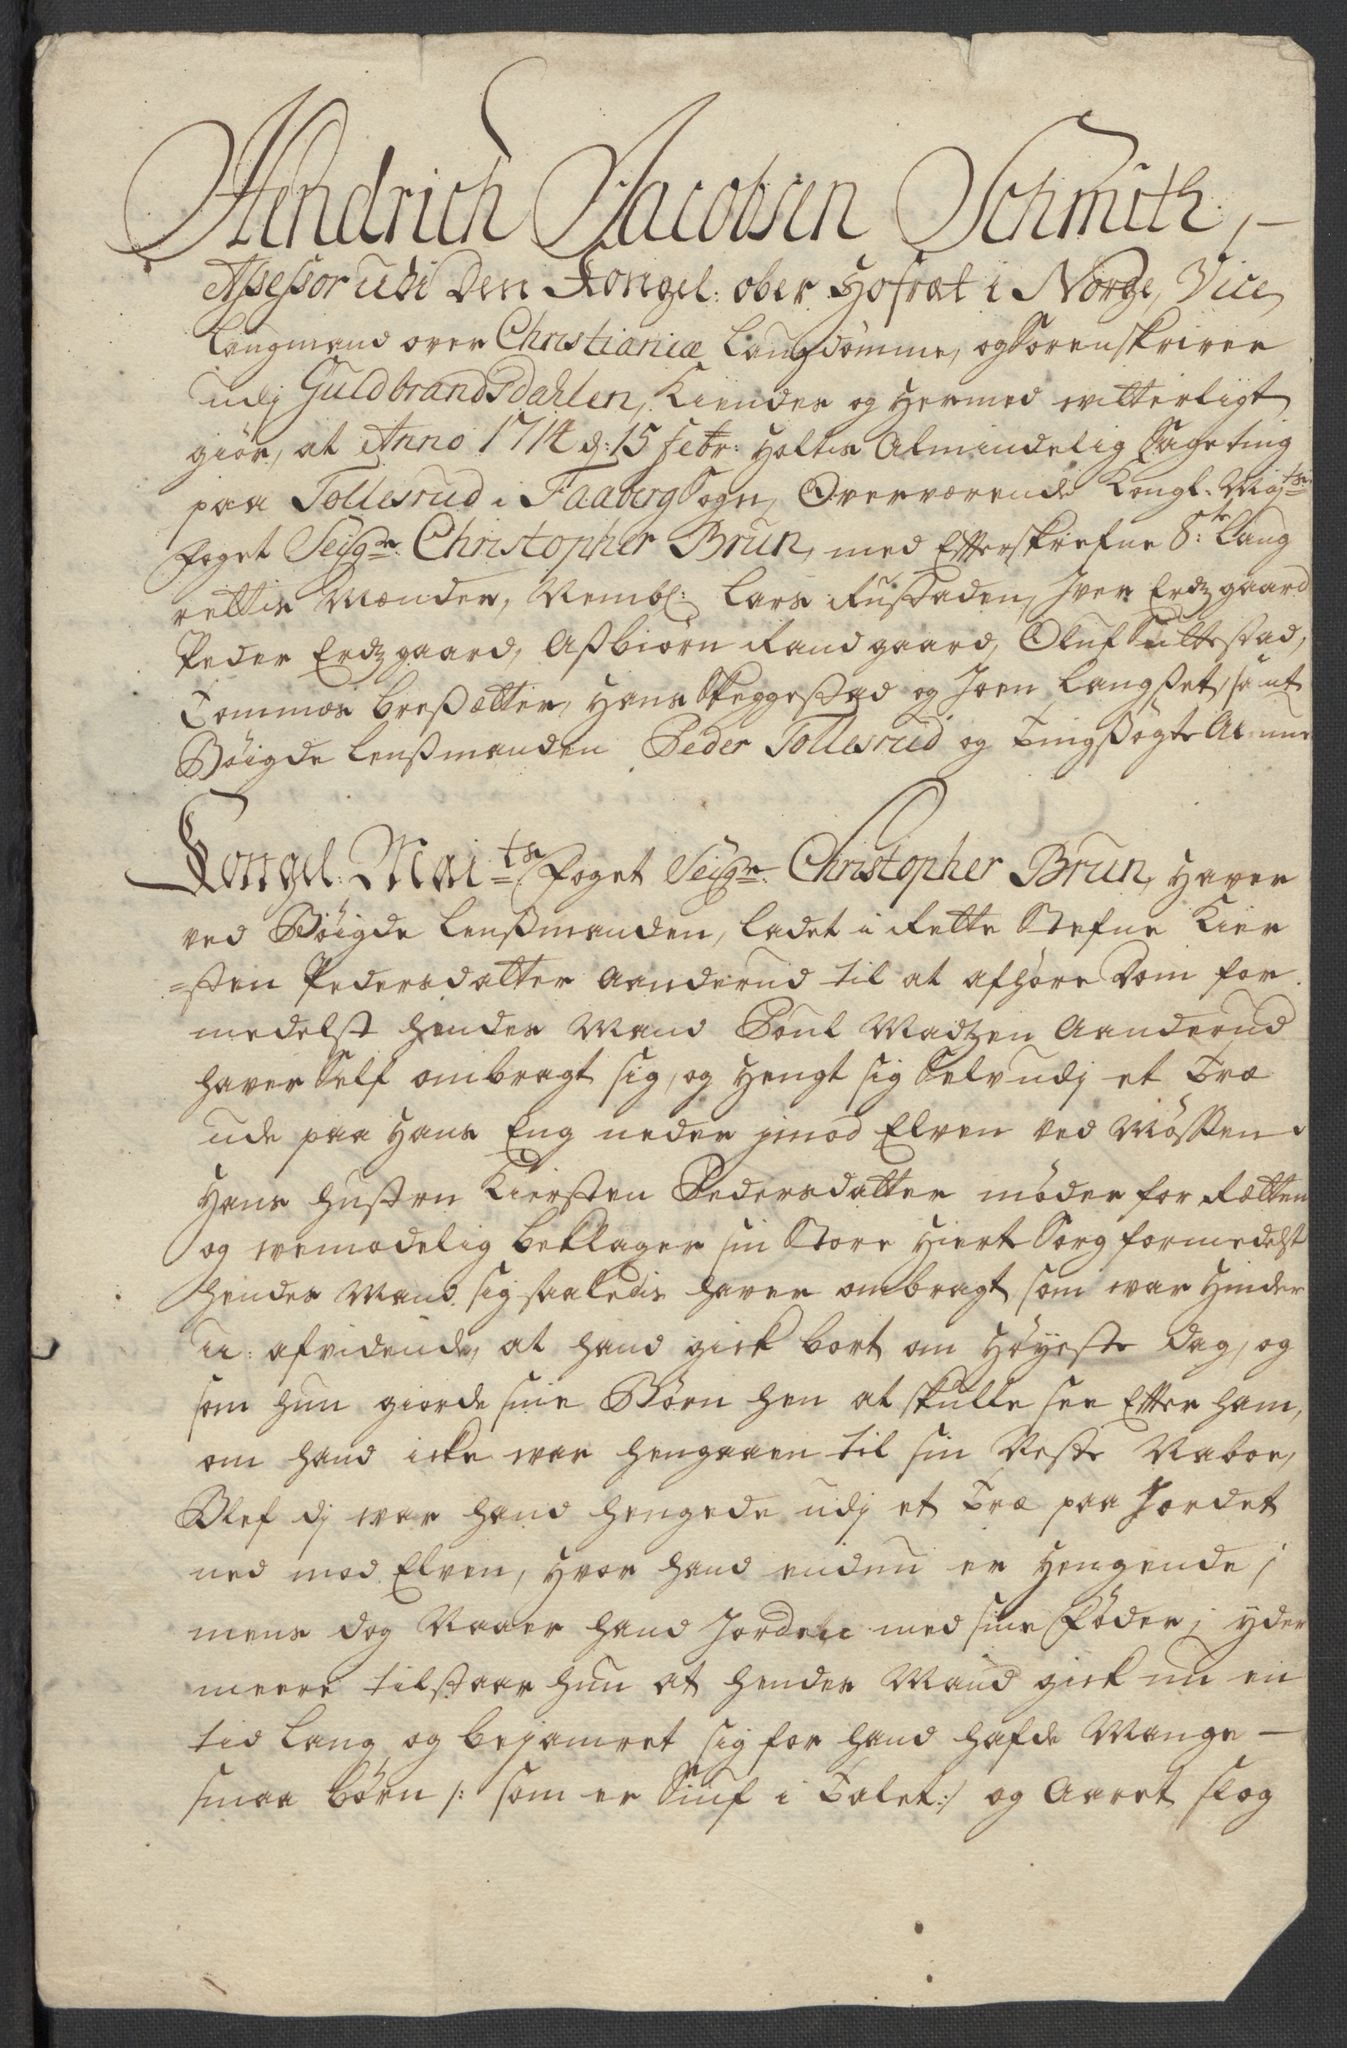 Hendrich Jacobsen Schmith,
Assessor udi Den Kongel: ober Hofræt i Norge, Vice
Laugmand over Christianiæ Laugdømme, og Sorenskriver
udj Guldbrandsdahlen, Kiendes og hermed witterligt
giør, at Anno 1714 d: 15 febr: holtes Almindelig Sageting
paa Tollesrud i Faaberg Sogn, Overværende Kongl: Mayts
foget Seigr: Christopher Brun, med Efterskrefne 8te Laug
rettis Mænder, Nembl: Lars Rustaden, Iver Erdzgaard
Peder Erdzgaard, Assbiørn Randgaard, Oluf Suttestad,
Tommes Bressætter, Hans Skeggestad og Joen Langset, samt
Bøigde Lensmanden Peder Tollesrud og Tingsøgte Almue
Kongel: Maits foget Seigr: Christopher Brun, haver
ved Bøigde Lensmanden, ladet i Rette Stefne Kier
=sten Pedersdatter Aanderud til at afhøre Dom for
medelst hendes Mand Poul Madzen Aanderud
haver Self ombragt sig, og hengt sig Selv udj et Træ
ude paa hans Eng neder imod Elven ved Møssen
Hans hustru Kiersten Pedersdatter møder for Rætten
og wemodelig beklager sin Store Hierte Sorg formedelst
hendes Mand sig saaledis haver ombragt som war hinder
u: afvidende, at hand gick bort om Høyeste dag, og
som hun giorde sine Børn hen at skulle see Efter ham,
om hand icke war hengaaen til sin Neste Naboe,
Blef dj war hand hengede udj et Træ paa Jordet
ned mod Elven, hvor hand endnu er hengende;
mens dog Naaer hand Jorden med sine Føder; yder
meere tilstaar hun at hendes Mand gick nu en
tid lang og bejamret sig for hand hafde Mange
smaa børn /: som er Siuf i Talet :/ og Aaret slog